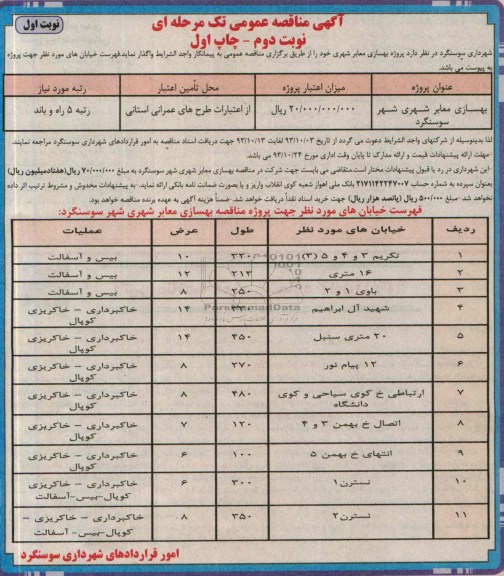 آگهی مناقصه عمومی تک مرحله ای
نوبت اول
نوبت دوم - چاپ اول
شهرداری سوسنگرد در نظر دارد پروژه بهسازی معابر شهری خود را از طریق برگزاری مناقصه عمومی به پیمانکار واجد الشرایط واگذار نماید.فهرست خیابان های مورد نظر جهت پروژه
به پیوست می باشد.
عنوان پروژه میزان اعتبار پروژه محل تأمین اعتبار رتبه مورد نیاز
بهسازی معابر شهری شهر سوسنگرد ۲۰/۰۰۰/۰۰۰/۰۰۰ ریال از اعتبارات طرح های عمرانی استانی رتبه ۵ راه و باند
لذا بدینوسیله از شرکتهای واجد الشرایط دعوت می گردد از تاریخ ۹۳/۱۰/۰۳ لغایت ۹۳/۱۰/۱۳ جهت دریافت اسناد مناقصه به امور قراردادهای شهرداری سوسنگرد مراجعه نمایند.
-مهلت ارائه پیشنهادات قیمت و ارائه مدارک تا پایان وقت اداری مورخ ۹۳/۱۰/۲۴ می باشد.
-این شهرداری در رد یا قبول پیشنهادات مختار است.متقاضی می بایست جهت شرکت در مناقصه بهسازی معابر شهری شهر سوسنگرد به مبلغ ۷۰/۰۰۰/۰۰۰ ریال(هفتادمیلیون ریال)
بعنوان سپرده به شماره حساب ۲۱۷۷۱۱۴۲۲۴۷۰۰۷ بانک ملی اهواز شعبه کوی انقلاب واریز و یا بصورت ضمانت نامه بانکی ارائه نماید. -به پیشنهادات مخدوش و مشروط ترتیب اثر داده
نخواهد شد -مبلغ ۵۰۰/۰۰۰ ریال (پانصد هزار ریال) جهت خرید اسناد نقداً دریافت خواهد شد. ضمناً هزینه آگهی به عهده برنده مناقصه خواهد بود.
فهرست خیابان های مورد نظر جهت پروژه مناقصه بهسازی معابر شهری شهر سوسنگرد:
ردیف خیابان های مورد نظر طول عرض عملیات
۱ تکریم ۳ و ۴ و ۵ (۳) ۳۲۰ ۱۰ بیس و آسفالت
۲ ۱۶ متری ۲۱۲ ۱۲ بیس و آسفالت
۳ باوی ۱ و ۲ ۲۵۰ ۸ بیس و آسفالت
۴ شهید آل ابراهیم ۱۴ خاکبرداری - خاکریزی کوپال
۵ ۲۰ متری سنبل ۴۵۰ ۱۴ خاکبرداری - خاکریزی کوپال
۶ ۱۲ پیام نور ۲۷۰ ۸ خاکبرداری - خاکریزی کوپال
۷ ارتباطی خ کوی سیاحی و کوی دانشگاه ۴۸۰ ۸ خاکبرداری - خاکریزی کوپال
۸ اتصال خ بهمن ۳ و ۴ ۱۲۰ ۷ خاکبرداری - خاکریزی کوپال
۹ انتهای خ بهمن ۵ ۱۰۰ ۶ خاکبرداری - خاکریزی کوپال
۱۰ نسترن۱ ۳۰۰ ۶ خاکبرداری - خاکریزی کوپال-بیس-آسفالت
۱۱ نسترن۲ ۳۵۰ ۸ خاکبرداری - خاکریزی - کوپال-بیس- آسفالت
امور قراردادهای شهرداری سوسنگرد